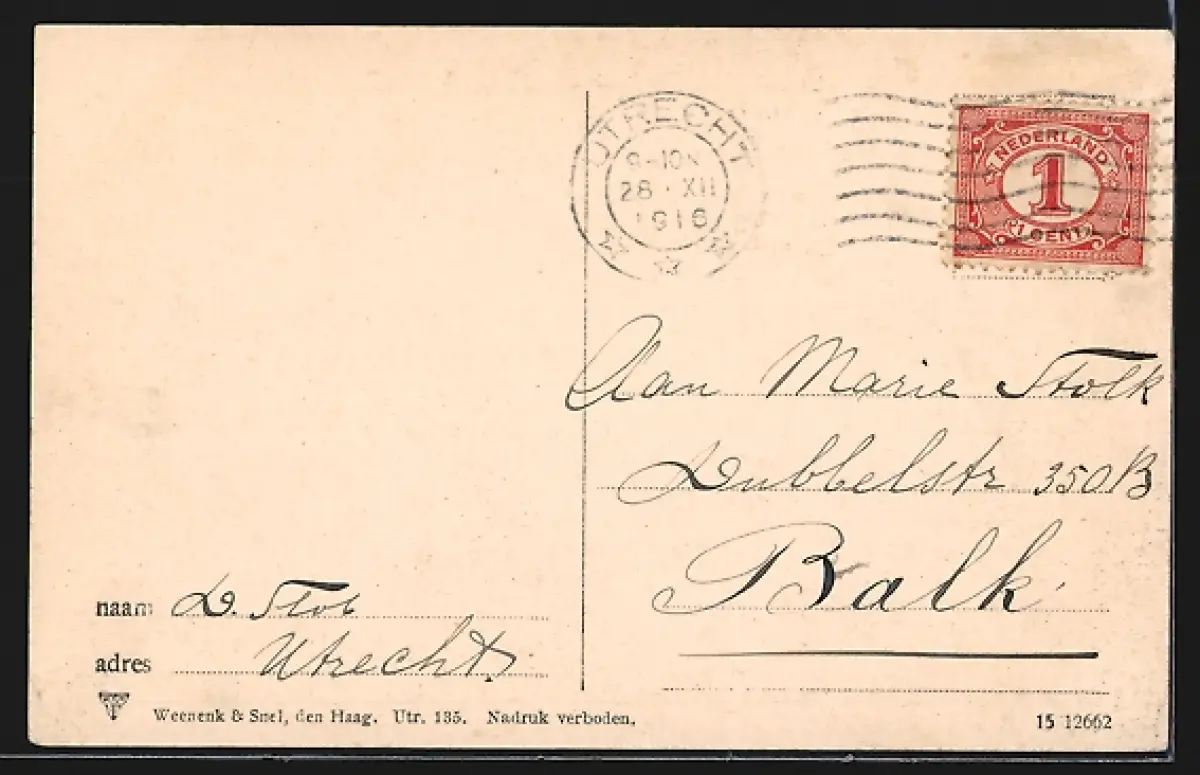 UTRECHT
9-10V
28 · XII
1916
NEDERLAND
1
1 CENT
Aan Marie Stolk
Dubbelstr 350B
Balk
naam D. Stob
adres Utrecht
Weenenk & Snel, den Haag. Utr. 135. Nadruk verboden.
15 12662